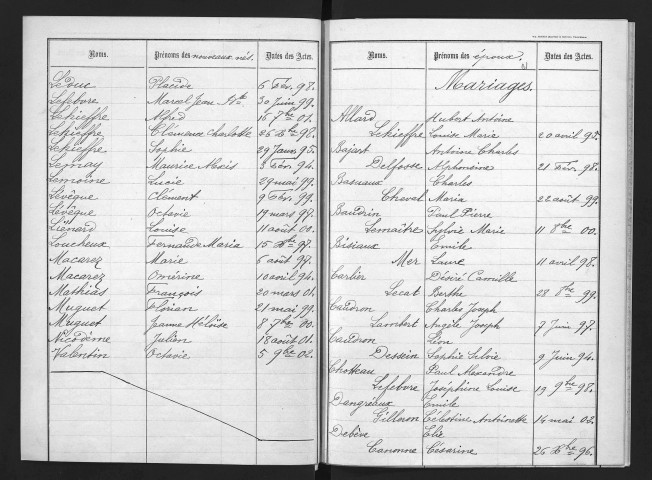 Noms. Prénoms des nouveaux nés. Dates des Actes.
Leduc Placide 6 Fév. 98.
Lefebvre Marcel Jean Bte 30 Juin 99.
Lekieffre Alfred 16 7bre 01.
Lekieffre Clémence Charlotte 26 Xbre 98.
Lekieffre Sophie 29 Janv. 95.
Lemay Maurice Alexis 3 Fév. 94.
Lemoine Lucie 29 mai 99.
Lévêque Clément 9 Fév. 99.
Lévêque Octavie 19 mars 97.
Liénard Louise 11 août 00.
Loucheux Fernande Maria 15 Xbre 97.
Macarez Marie 6 août 97.
Macarez Omérine 10 avril 94.
Mathias François 20 mars 01.
Muguet Florian 21 mai 99.
Muguet Jeanne Héloïse 8 7bre 00.
Nicodème Julien 18 août 01.
Valentin Octavie 5 9bre 02.
Noms. Prénoms des époux. Dates des Actes.
Mariages.
Allard Hubert Antoine
Lekieffre Louise Marie 20 avril 95.
Bajart Antoine Charles
Delfosse Alphonsine 21 Fév. 98.
Basuaux Charles
Cheval Maria 22 août 99.
Baudrin Paul Pierre
Lemaître Sylvie Marie 11 8bre 00.
Bisiaux Emile
Mer Laure 11 avril 98.
Carlier Désiré Camille
Lecat Berthe 28 8bre 99.
Caudron Charles Joseph
Lambert Angèle Joseph 7 Juin 97.
Caudron Léon
Dessein Sophie Silvie 9 Juin 94.
Chotteau Paul Alexandre
Lefebvre Joséphine Louise 19 9bre 98.
Dangréaux Emile
Gilleron Célestine Antoinette 14 mai 02.
Debève Elie
Canonne Césarine 26 Xbre 96.